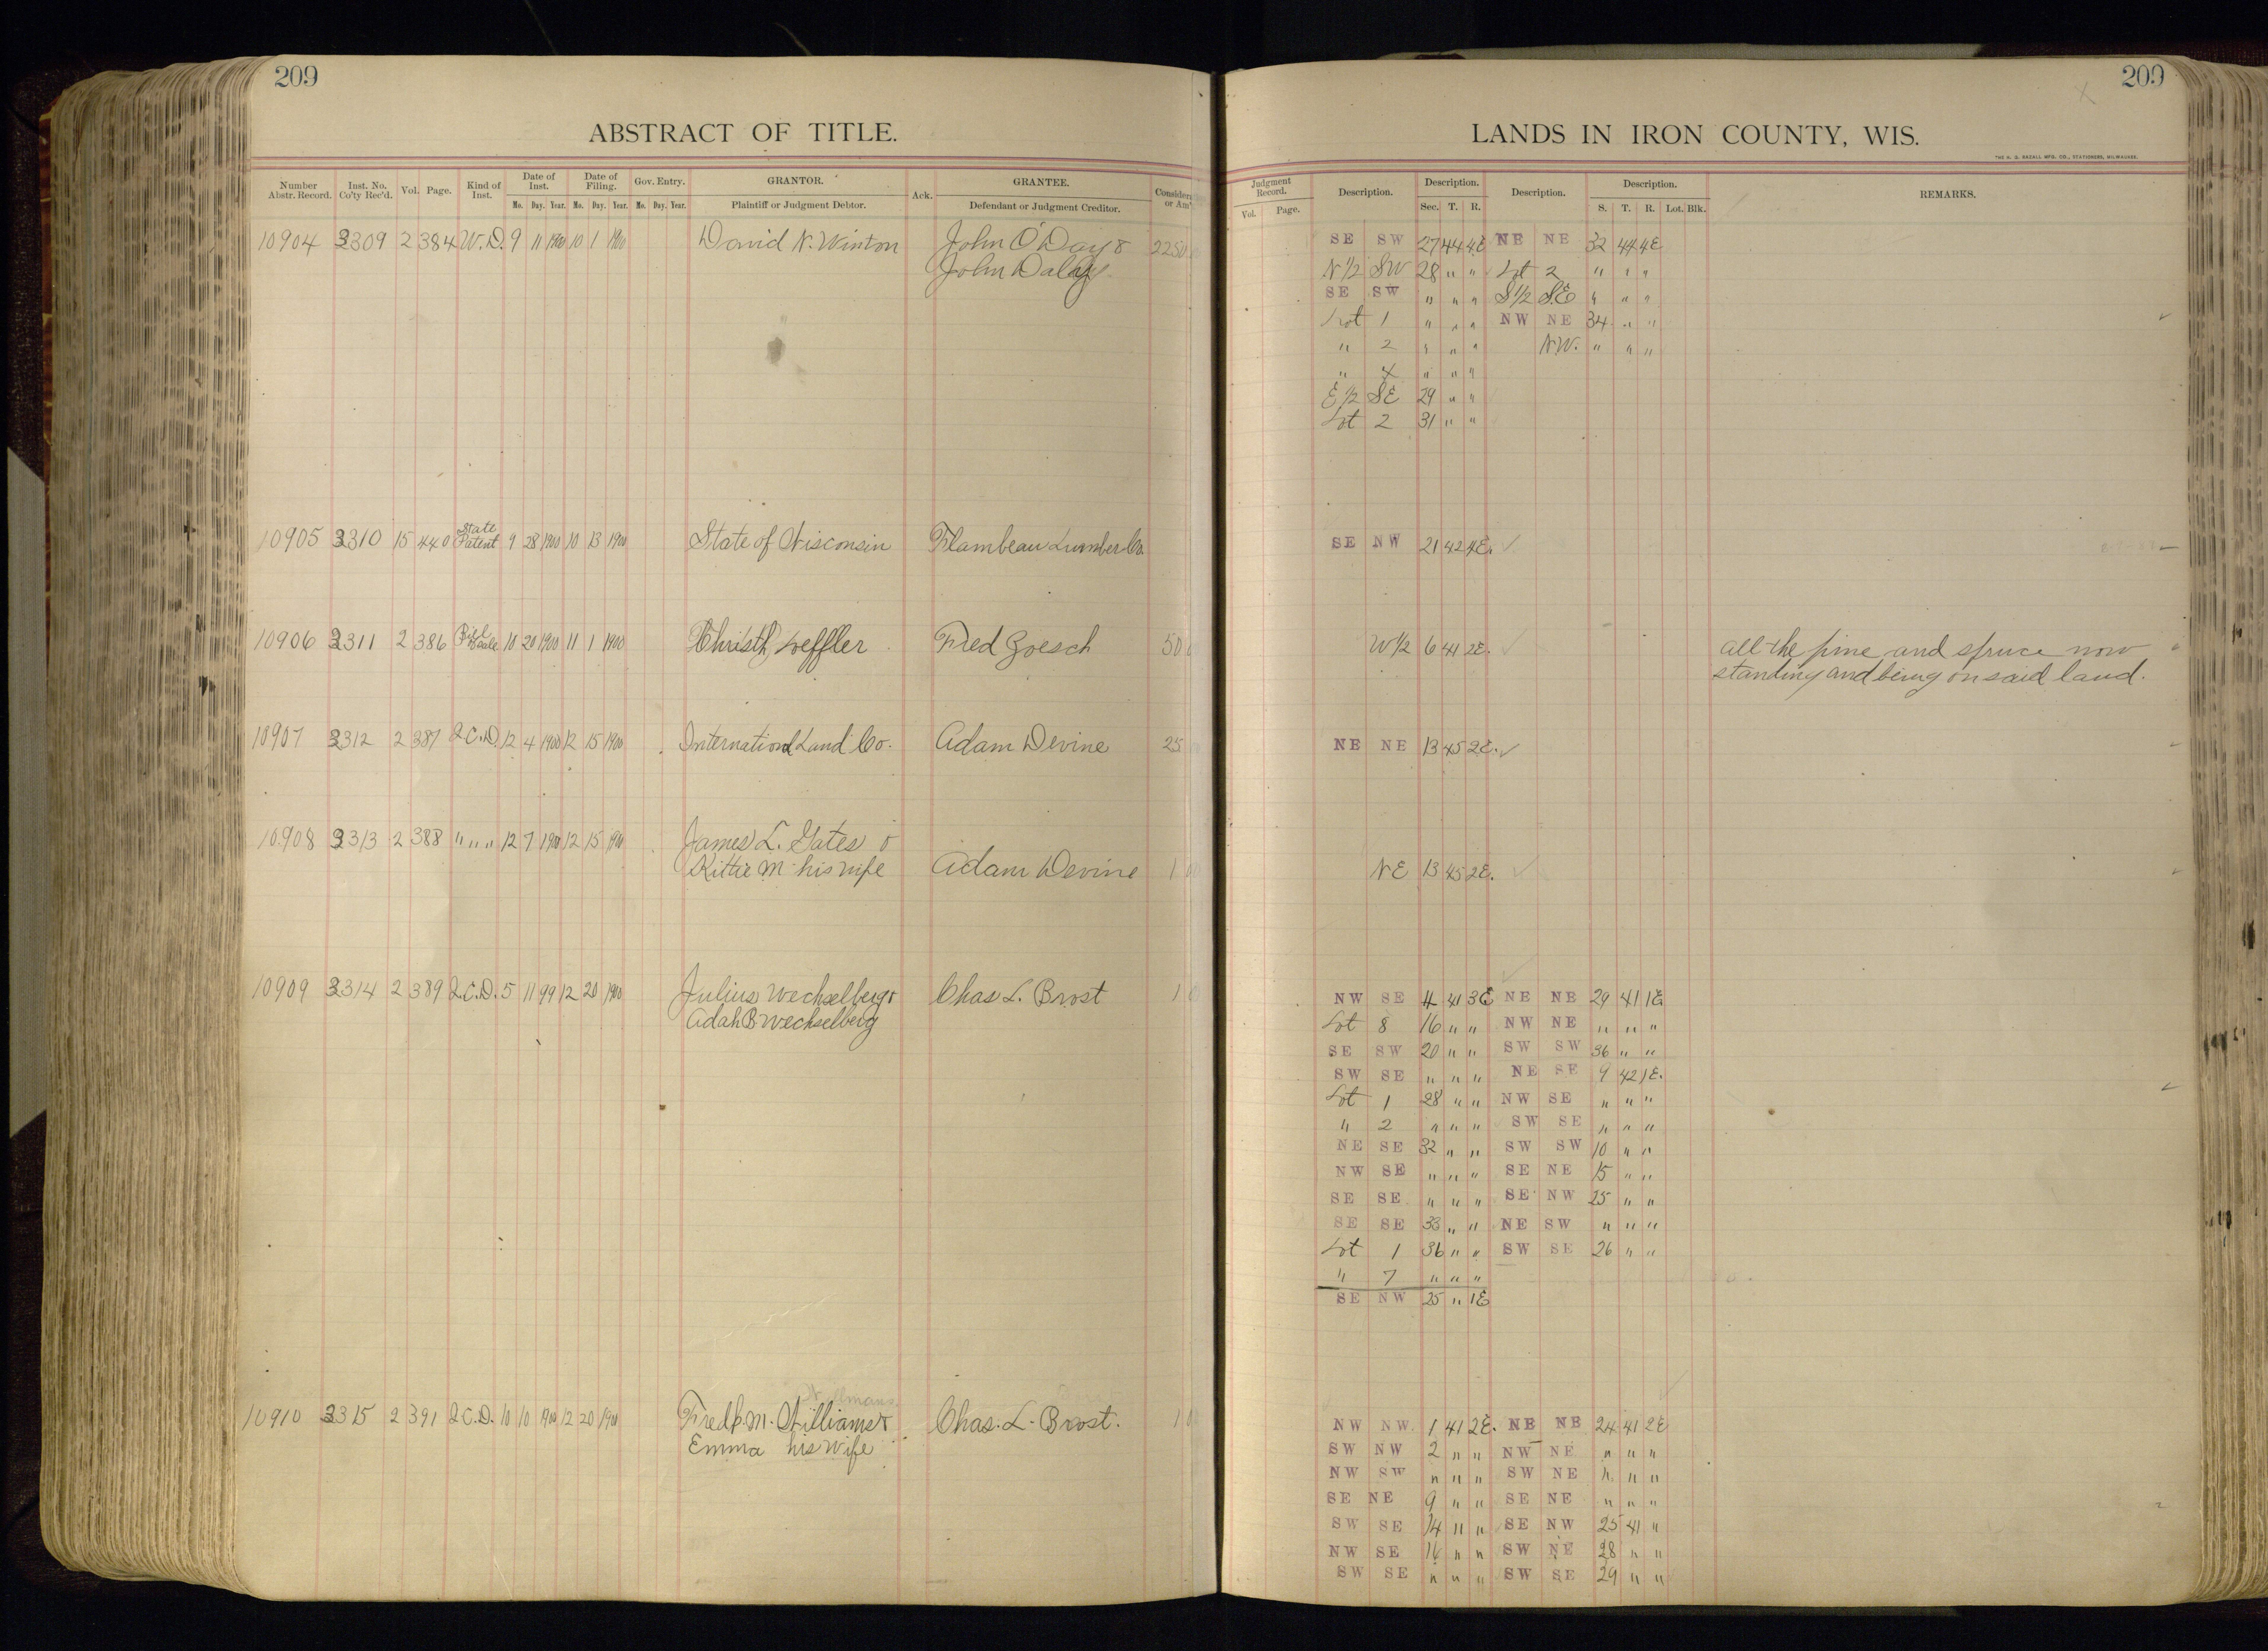 209
ABSTRACT OF TITLE.
Number Abstr. Record. Inst. No. Co'ty Rec'd. Vol. Page. Kind of Inst. Date of Inst. Mo. Day. Year. Date of Filing. Mo. Day. Year. Gov. Entry. Mo. Day. Year. GRANTOR. Plaintiff or Judgment Debtor. Ack. GRANTEE. Defendant or Judgment Creditor.
10904 3309 2 384 W.D. 9 11 1900 10 1 1900 David N. Winton John O'Day & 2250
John Daley
10905 3310 15 440 State Patent 9 28 1900 10 13 1900 State of Wisconsin Flambeau Lumber Co.
10906 3311 2 386 Bill Sale 10 20 1900 11 1 1900 Loeffler Fred Goesch 50
10907 3312 2 387 Q.C.D. 12 4 1900 12 15 1900 International Land Co. Adam Devine 25
10908 3313 2 388 " " " 12 7 1900 12 15 1900 James L. Gates &
Kittie M his wife Adam Devine 1
10909 3314 2 389 Q.C.D. 5 11 99 12 20 1900 Julius Wechselberg & Chas L. Brost 1
Adah B Wechselberg
10910 3315 2 391 Q.C.D. 10 10 1900 12 20 1900 Fredk M. Chas. L. Brost. 1
Emma his wife
209
LANDS IN IRON COUNTY, WIS.
THE H. G. RAZALL MFG. CO., STATIONERS, MILWAUKEE.
Judgment Record. Vol. Page. Description. Description. Sec. T. R. Description. Description. S. T. R. Lot. Blk. REMARKS.
SE SW 27 44 4E NE NE 32 44 4E
N 1/2 SW 28 " " Lot 2 " " "
SE SW " " " S 1/2 SE " " "
Lot 1 " " " NW NE 34 " "
" 2 " " " NW. " " "
" 4 " " "
E 1/2 SE 29 " "
Lot 2 31 " "
SE NW 21 42 4E.
W 1/2 6 41 2E. all the pine and spruce now
standing and being on said land.
NE NE 13 45 2E.
NE 13 45 2E.
NW SE 4 41 3E NE NE 29 41 1E
Lot 8 16 " " NW NE " " "
SE SW 20 " " SW SW 36 " "
SW SE " " " NE SE 9 42 1E.
Lot 1 28 " " NW SE " " "
" 2 " " " SW SE " " "
NE SE 32 " " SW SW 10 " "
NW SE " " " SE NE 15 " "
SE SE " " " SE NW 25 " "
SE SE 33 " " NE SW " " "
Lot 1 36 " " SW SE 26 " "
" 7 " " "
SE NW 25 " 1E
NW NW. 1 41 2E. NE NE 24 41 2E
SW NW 2 " " NW NE " " "
NW SW " " " SW NE " " "
SE NE 9 " " SE NE " " "
SW SE 14 " " SE NW 25 41 "
NW SE 16 " " SW NE 28 " "
SW SE " " " SW SE 29 " "